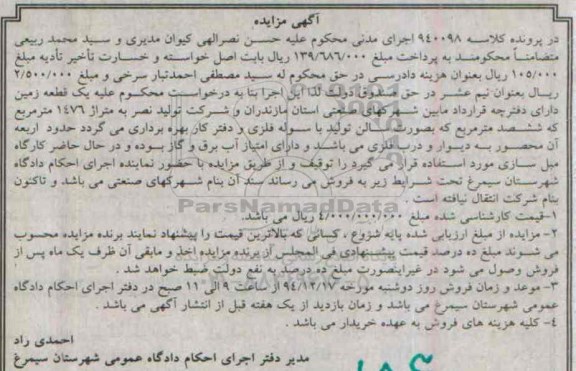 آگهی مزایده
در پرونده کلاسه ۹۴۰۰۹۸ اجرای مدنی محکوم علیه حسن نصرالهی کیوان مدیری و سید محمد ربیعی
متضامناً محکومند به پرداخت مبلغ ۱۳۹/۶۸۶/۰۰۰ ریال بابت اصل خواسته و خسارت تأخیر تأدیه مبلغ
۱۰۵/۰۰۰ ریال بعنوان هزینه دادرسی در حق محکوم له سید مصطفی احمدتبار سرخی و مبلغ ۲/۵۰۰/۰۰۰
ریال بعنوان نیم عشر در حق صندوق دولت لذا این اجرا بنا به درخواست محکوم علیه یک قطعه زمین
دارای دفترچه قرارداد مابین شهرکهای صنعتی استان مازندران و شرکت تولید نصر به متراژ ۱۴۷۶ مترمربع
که ششصد مترمربع که بصورت سالن تولید با سوله فلزی و دفتر کار بهره برداری می گردد حدود اربعه
آن محصور به دیوار و درب فلزی می باشد و دارای امتیاز آب برق و گاز بوده و در حال حاضر کارگاه
مبل سازی مورد استفاده قرار می گیرد را توقیف و از طریق مزایده با حضور نماینده اجرای احکام دادگاه
شهرستان سیمرغ تحت شرایط زیر به فروش می رساند سند آن بنام شهرکهای صنعتی می باشد و تاکنون
بنام شرکت انتقال نیافته است .
۱-قیمت کارشناسی شده مبلغ ۴/۰۰۰/۰۰۰/۰۰۰ ریال می باشد.
۲- مزایده از مبلغ ارزیابی شده پایه شروع ، کسانی که بالاترین قیمت را پیشنهاد نمایند برنده مزایده محسوب
می شوند مبلغ ده درصد قیمت پیشنهادی فی المجلس از برنده مزایده اخذ و مابقی آن ظرف یک ماه پس از
فروش وصول می شود در غیراینصورت مبلغ ده درصد به نفع دولت ضبط خواهد شد .
۳- موعد و زمان فروش روز دوشنبه مورخه ۹۴/۱۲/۱۷ از ساعت ۹ الی ۱۱ صبح در دفتر اجرای احکام دادگاه
عمومی شهرستان سیمرغ می باشد و زمان بازدید از یک هفته قبل از انتشار آگهی می باشد .
۴- کلیه هزینه های فروش به عهده خریدار می باشد .
احمدی راد
مدیر دفتر اجرای احکام دادگاه عمومی شهرستان سیمرغ
ParsNamadData